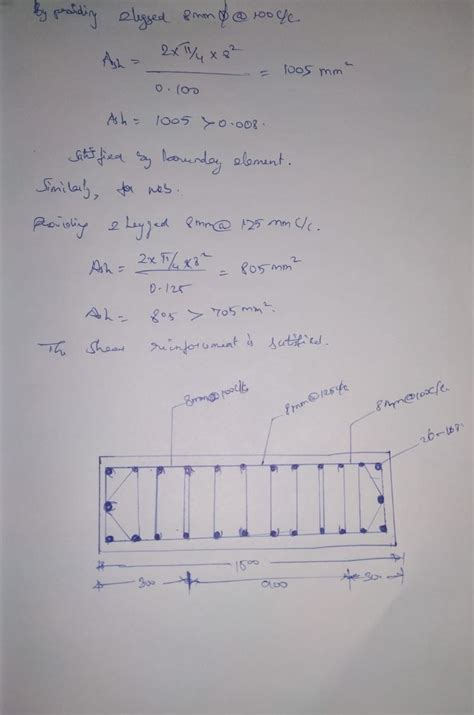 By providing 2 legged 8mm ϕ @ 100 c/c.
Ash = 2 x π/4 x 8² / 0.100 = 1005 mm²
Ash = 1005 > 0.008.
satisfied by boundary element.
Similarly, for web.
Providing 2 legged 8mm @ 125 mm c/c.
Ash = 2 x π/4 x 8² / 0.125 = 805 mm²
Ash = 805 > 705 mm².
The shear reinforcement is satisfied.
8mm@100c/c
8mm@125c/c
8mm@100c/c
1500
300
900
300